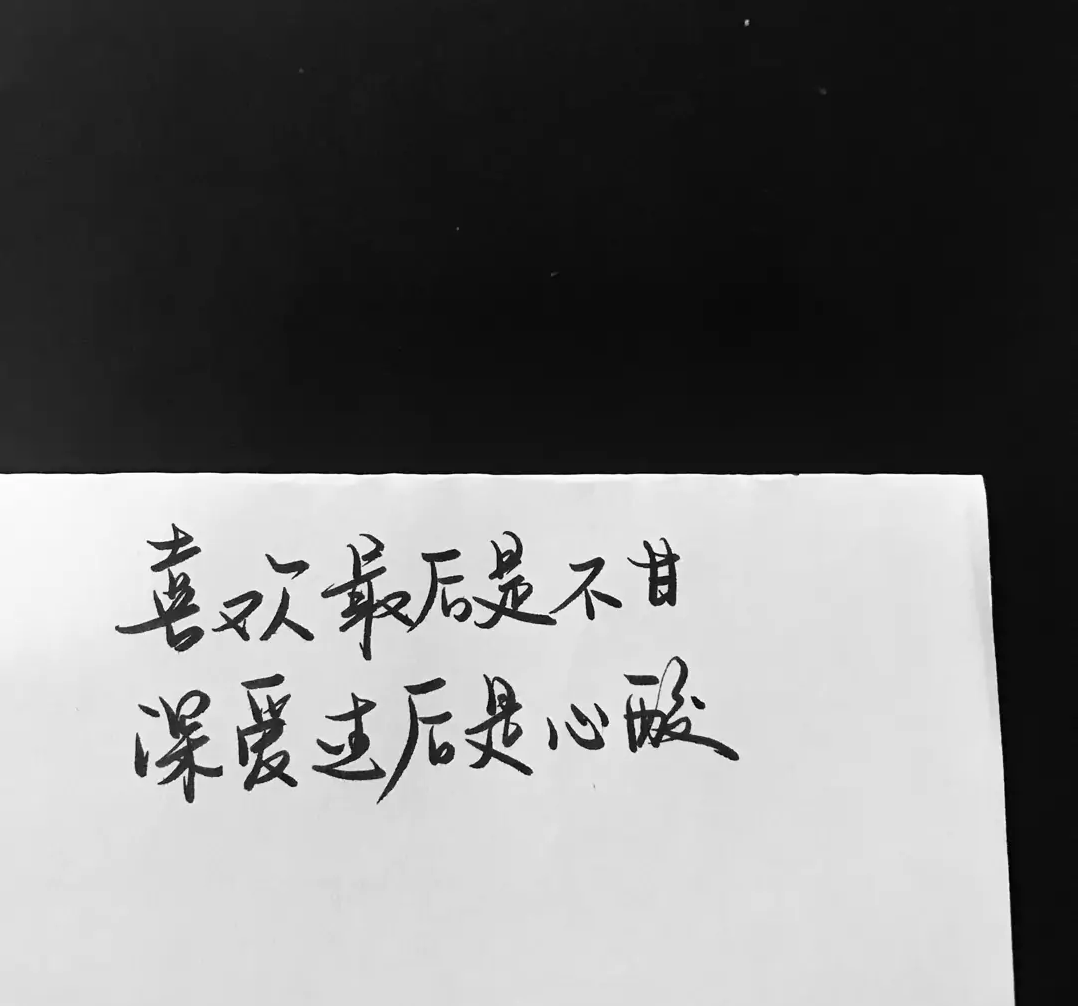 喜欢最后是不甘
深爱走后是心酸